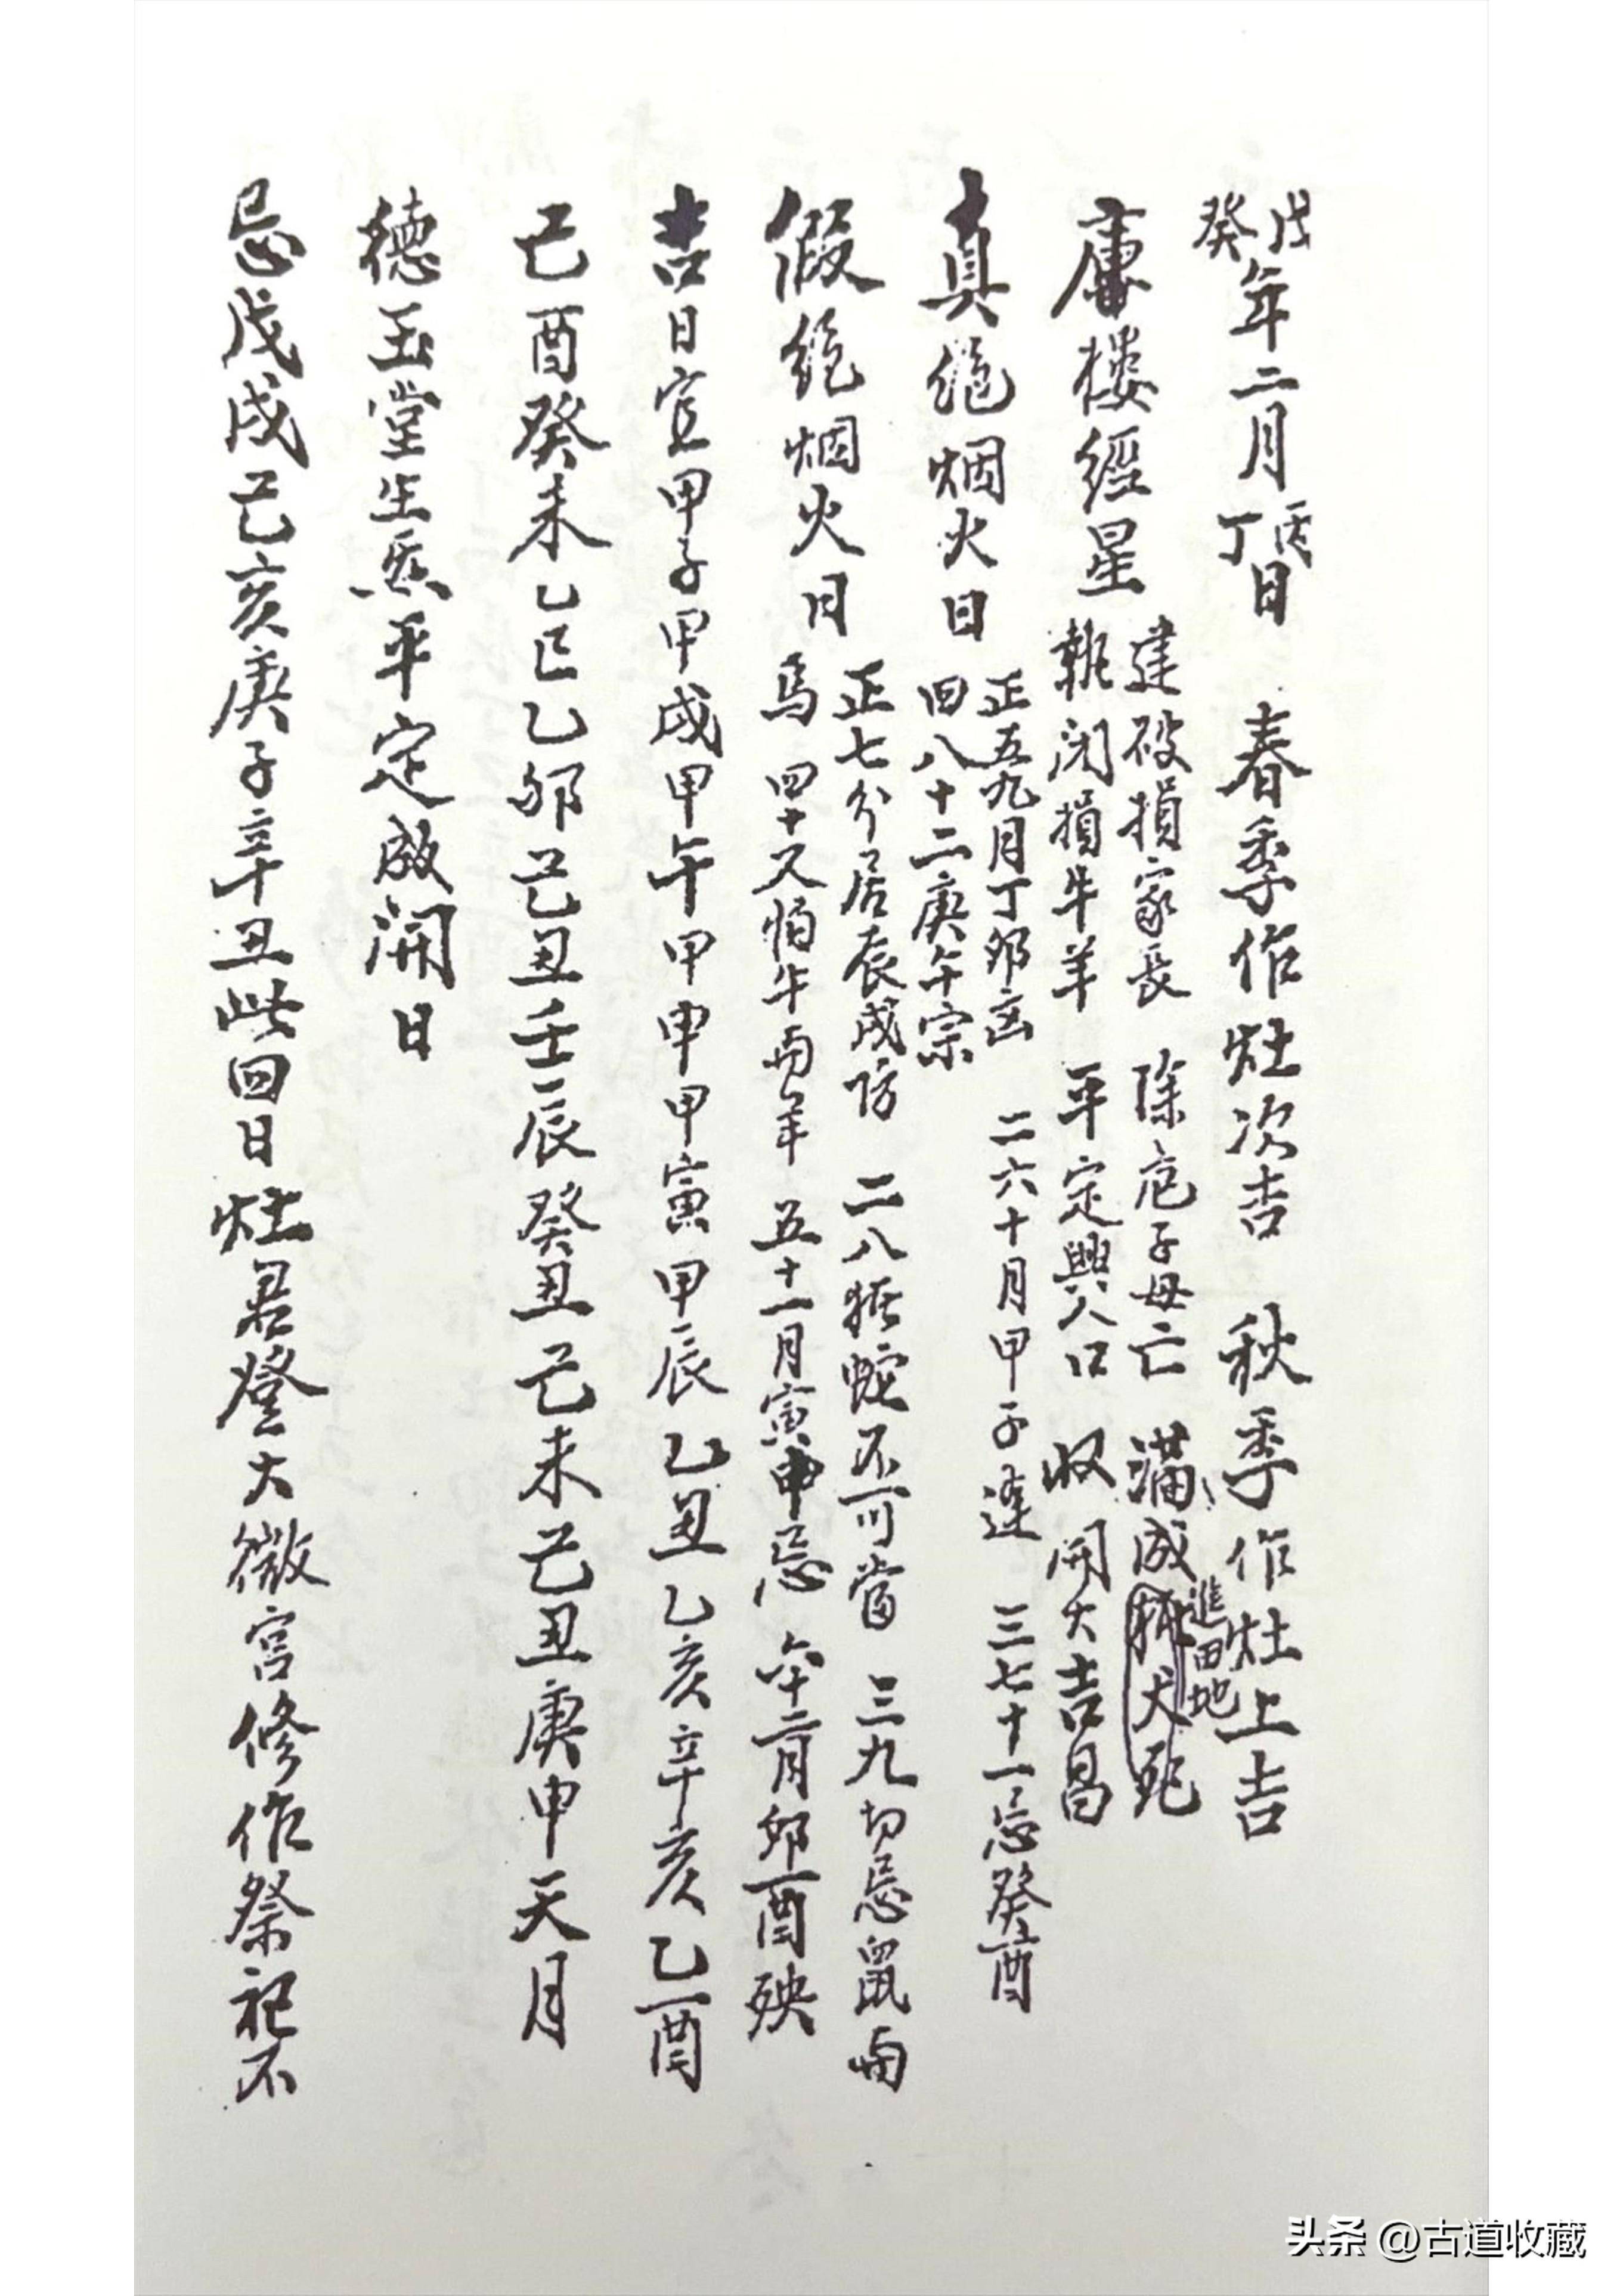 戊癸年二月丙丁日 春季作灶次吉 秋季作灶上吉
庚楼經星 建破損家長 除危子母亡 滿成猪犬死 進田地
執闭損牛羊 平定興人口 收開大吉昌
真絶烟火日 正五九月丁卯凶 二六十月甲子逢 三七十一忌癸酉
四八十二庚午宗
假絶烟火日 正七分居辰戌防 二八猪蛇不可當 三九切忌鼠与
馬 四十又怕牛与羊 五十一月寅申忌 六十二月卯酉殃
吉日宜甲子甲戌甲午甲申甲寅甲辰乙丑乙亥辛亥乙酉
己酉癸未乙巳乙卯己丑壬辰癸丑己未己丑庚申天月
德玉堂生炁平定成開日
忌戊戌己亥庚子辛丑此四日灶君登大微宫修作祭祀不
头条 @古道收藏